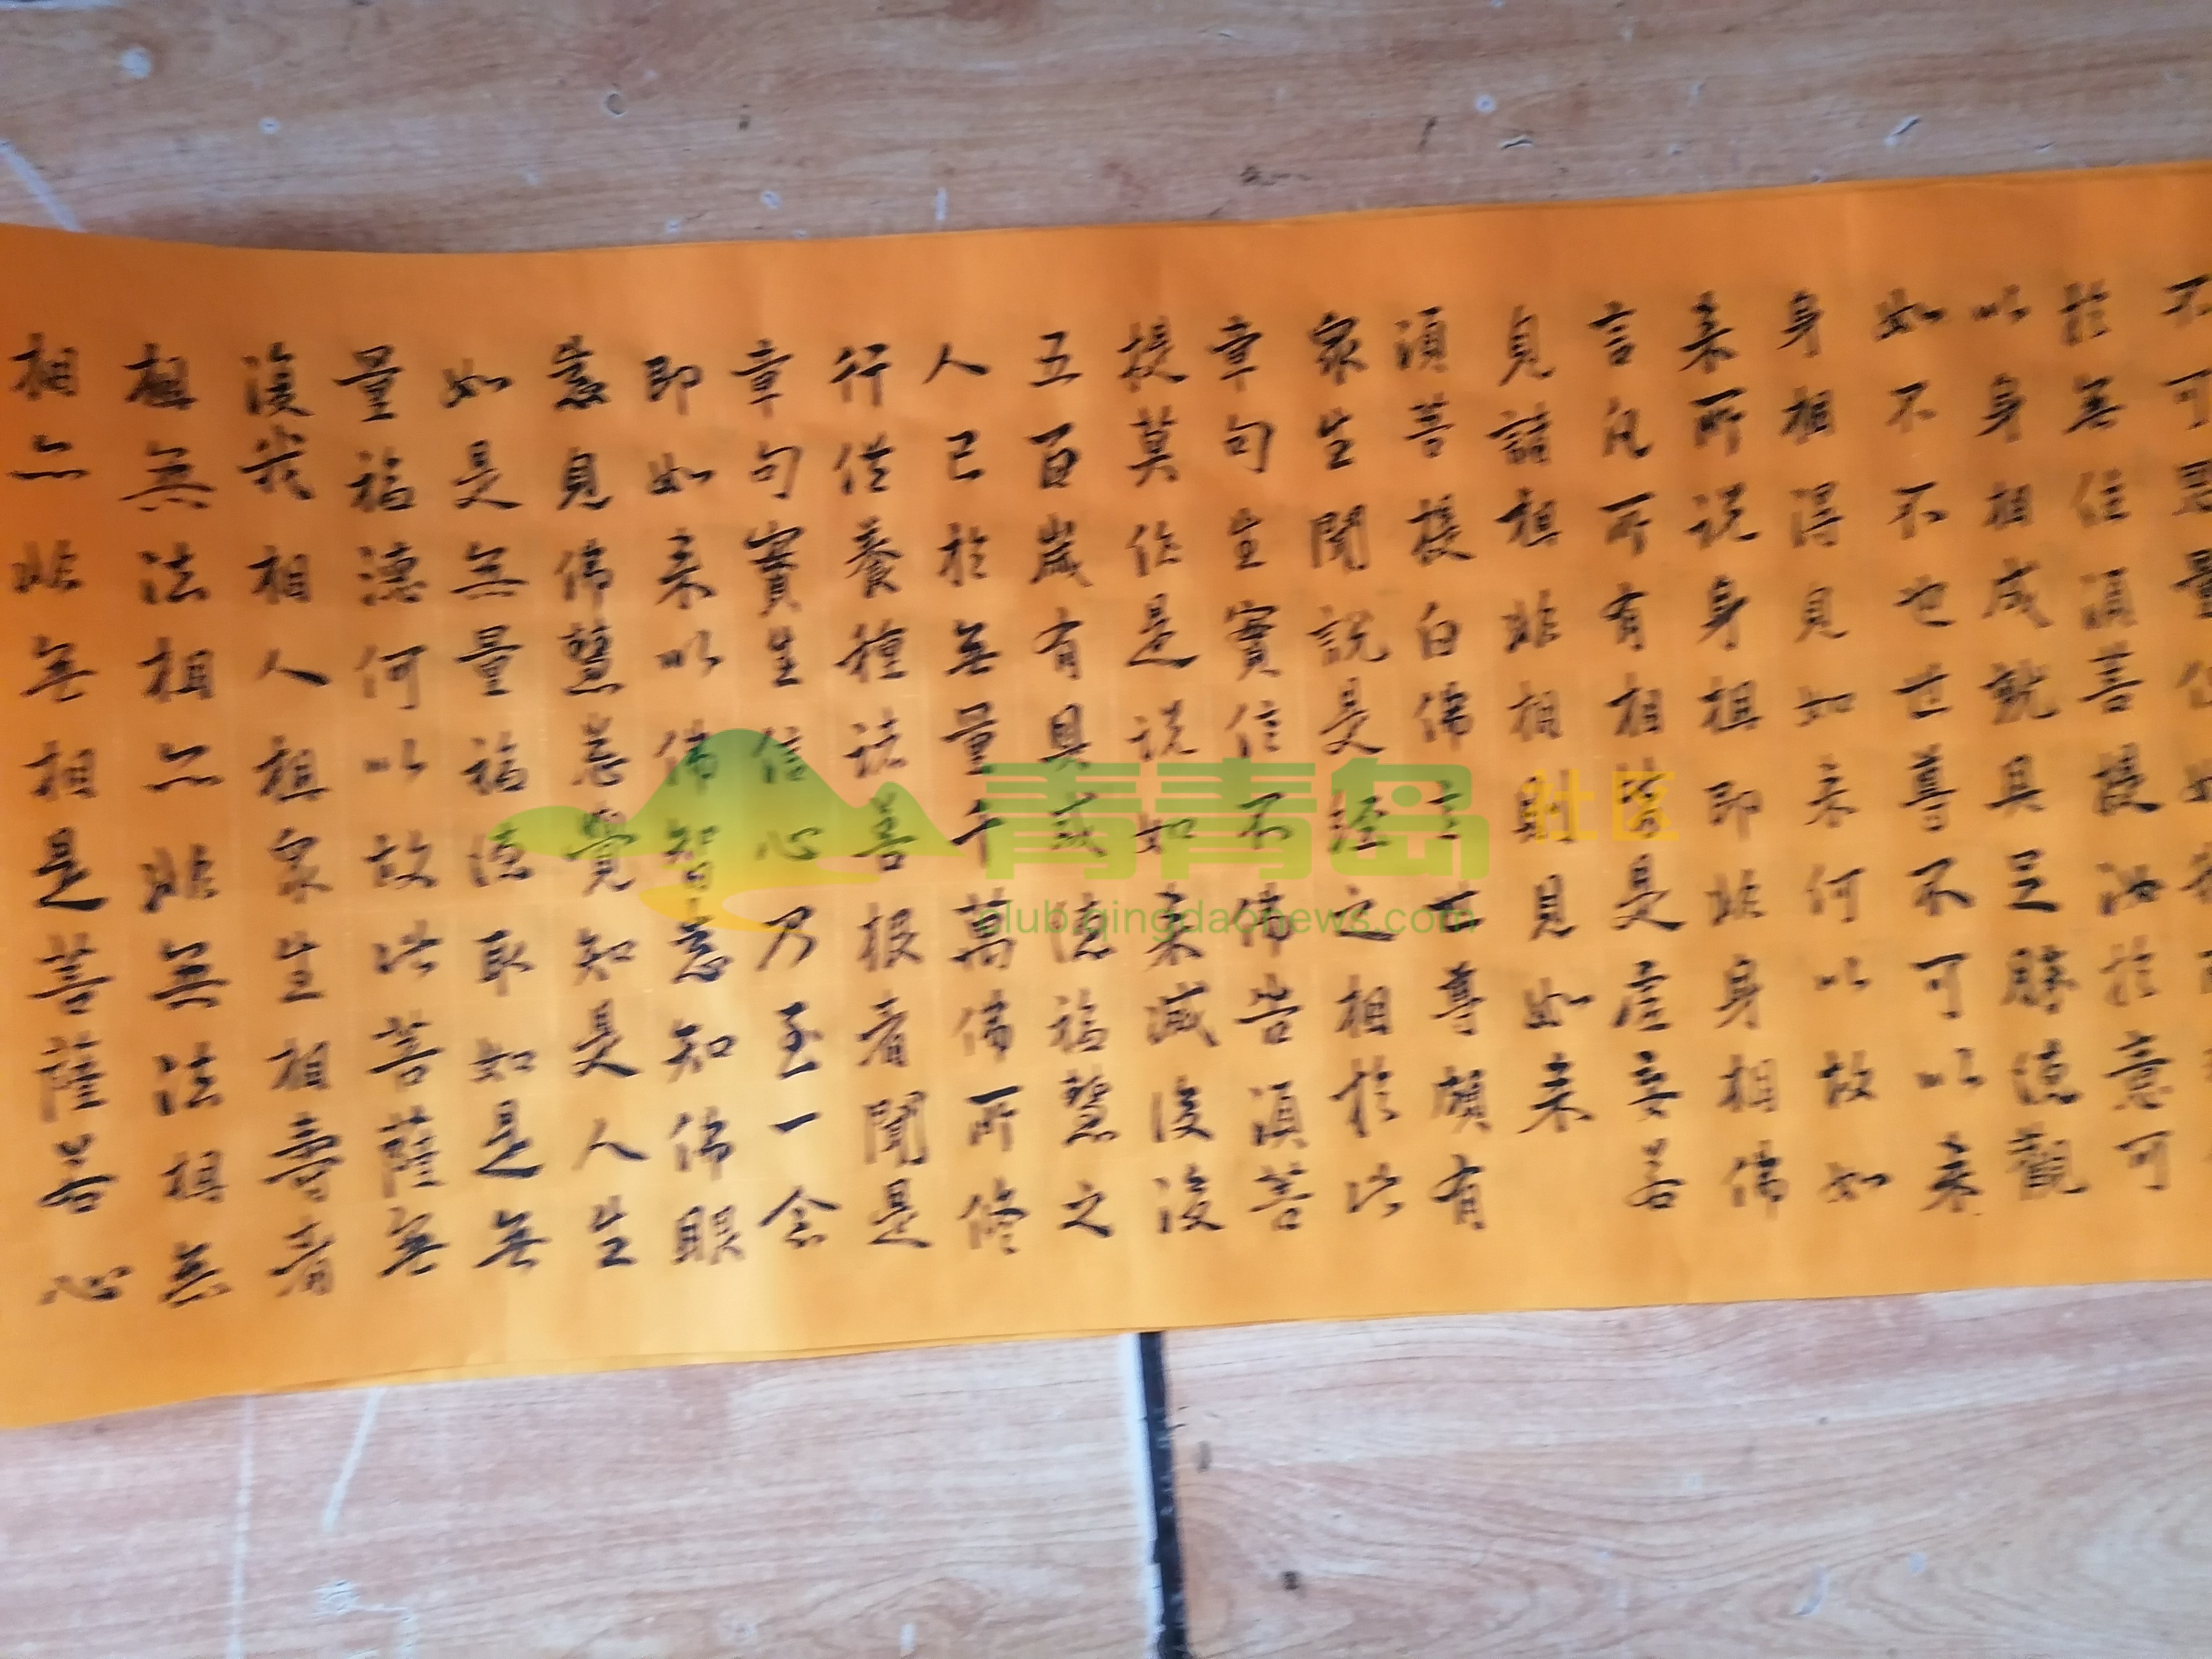 不可思量
於無住須菩提汝於意可
以身相成就具足勝德觀
如不不也世尊不可以来
身相得見如来何以故如
来所说身相即非身相佛
言凡所有相皆是虛妄若
見諸相非相則見如来
須菩提白佛言世尊頗有
衆生聞說是經之相於此
章句生實信不佛告須菩
提莫作是说如来滅後後
五百歲有具戒德福慧之
人已於無量千萬佛所修
行供養種諸善根者聞是
章句實生信心乃至一念
即如来以佛智悉知佛眼
悉見佛慧悉覺知是人生
如是無量福德取如是無
量福德何以故此菩薩無
復我相人相衆生相壽者
相無法相亦非無法相無
相亦非無相是菩薩若心
青青岛社区
club.qingdaonews.com